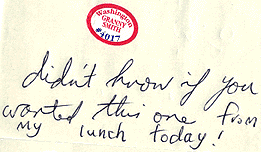 Washington
GRANNY
SMITH
#4017
didn't know if you
wanted this one from
my lunch today!